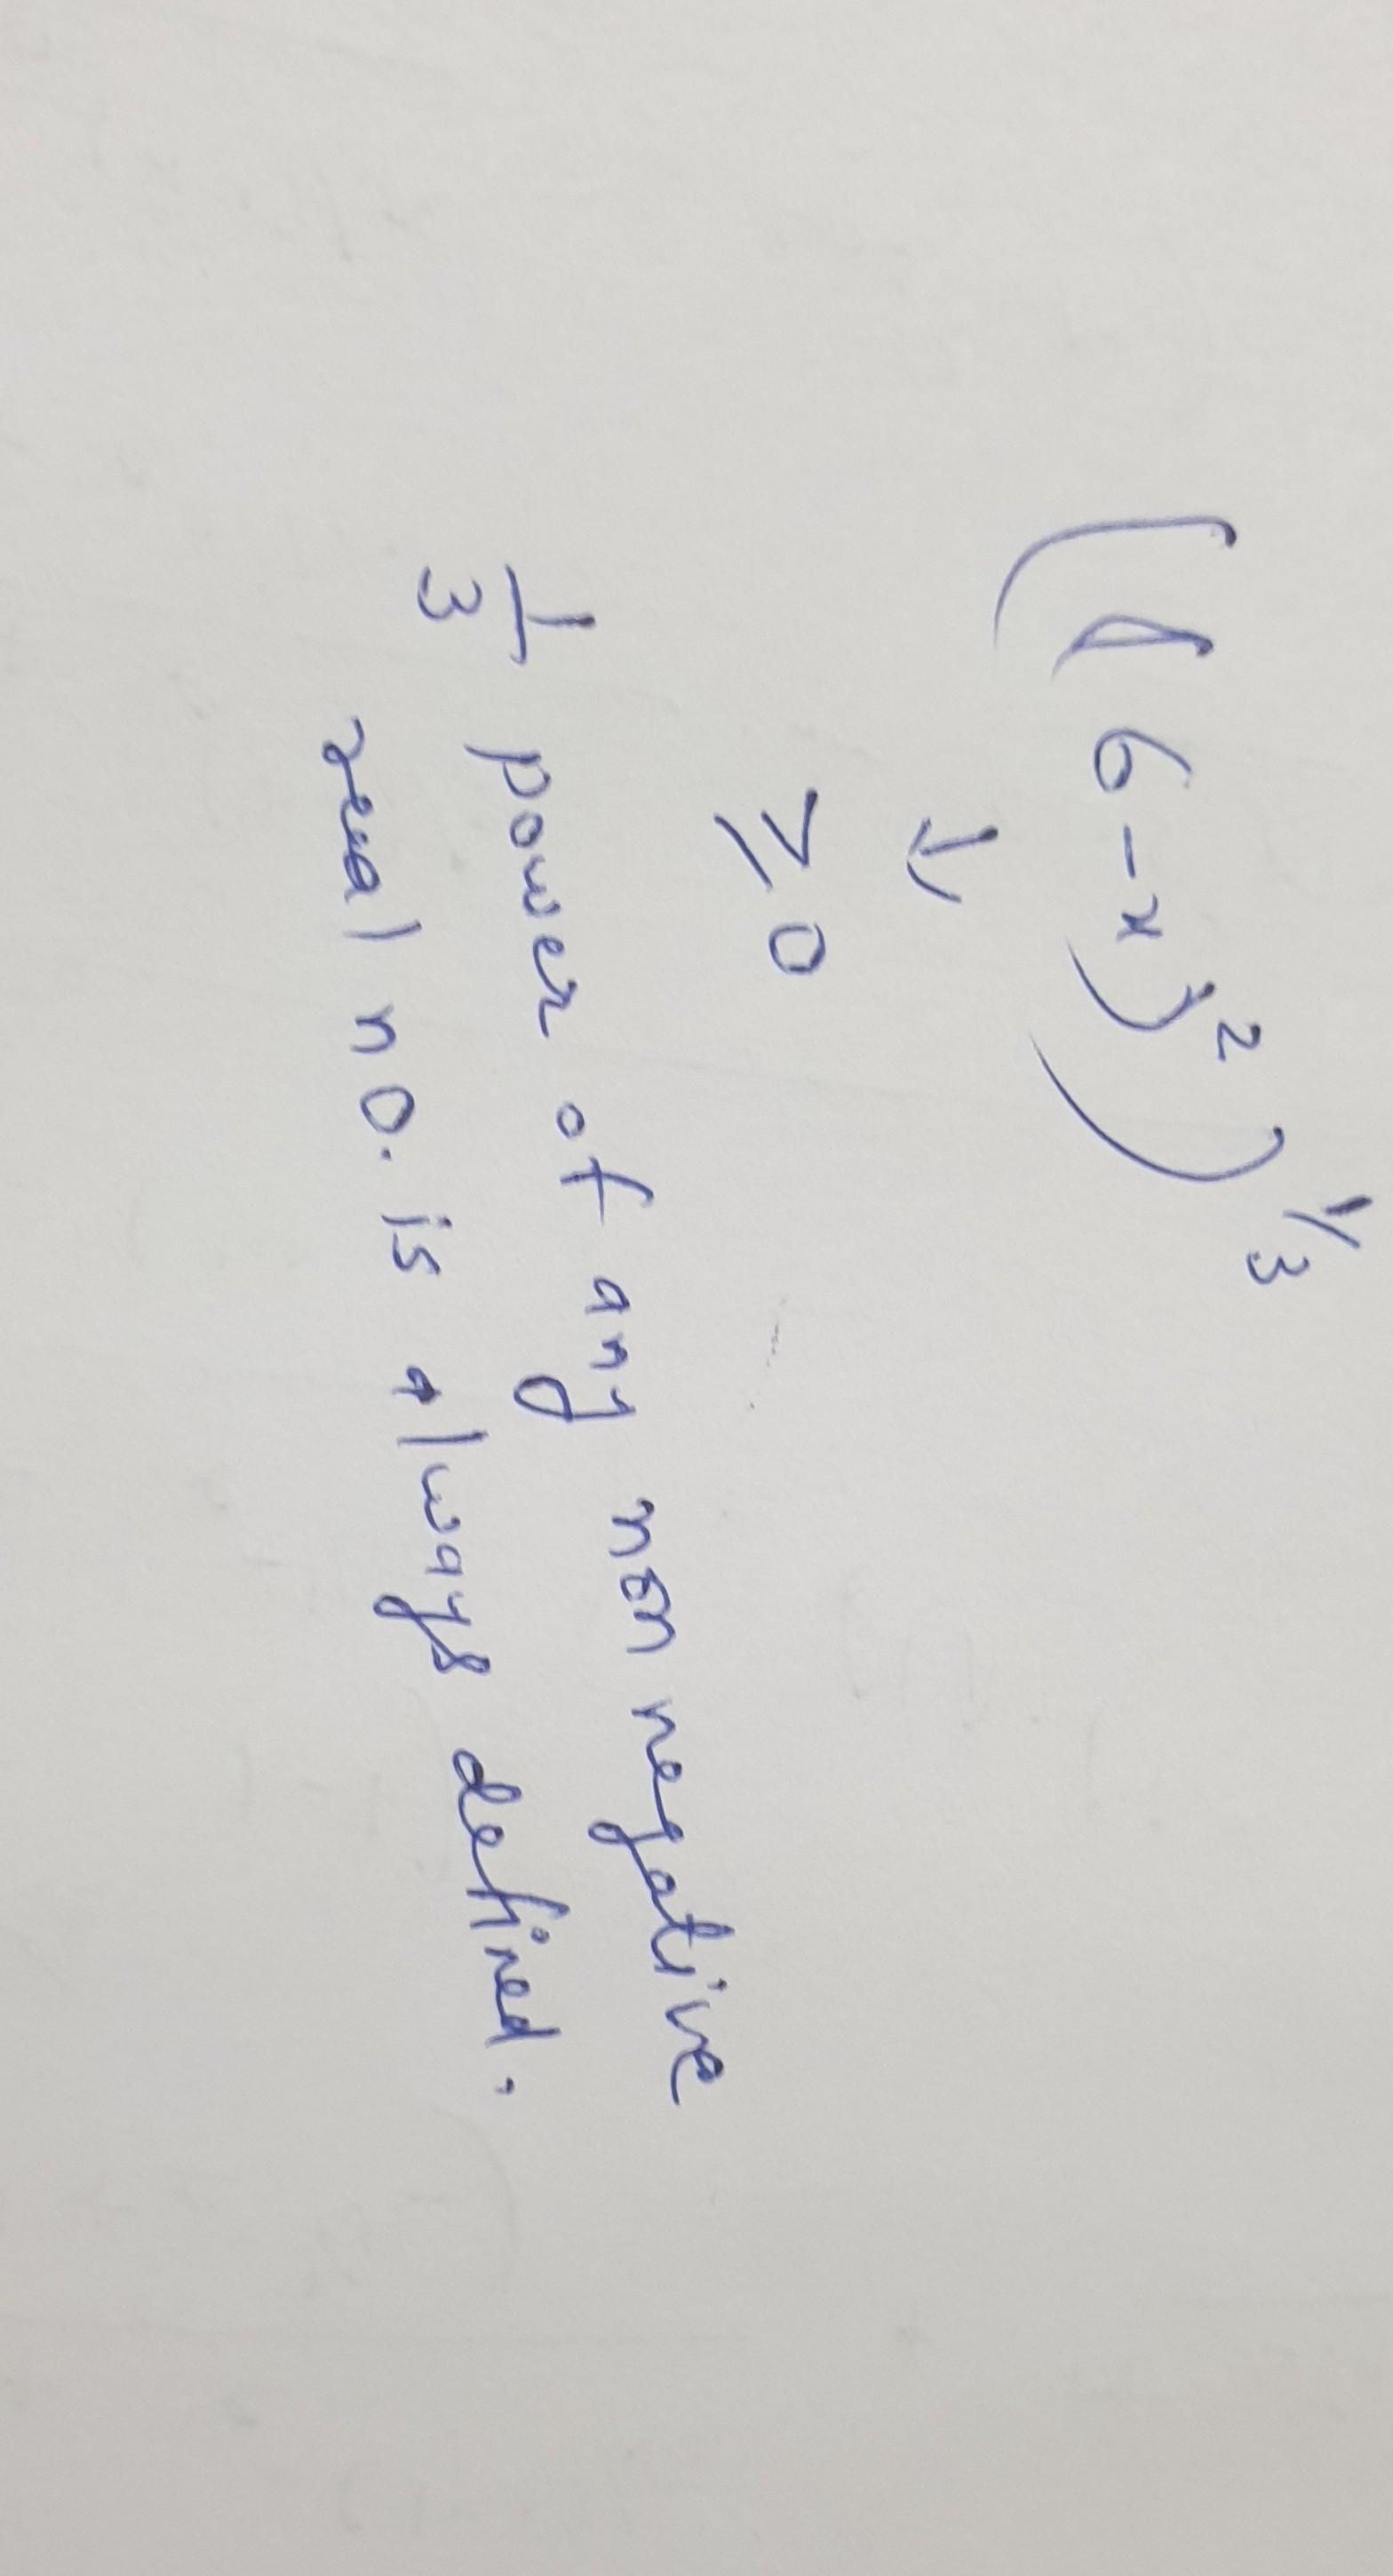 ((6-x)²)^1/3
↓
≥ 0
1/3 power of any non negative
real no. is always defined.